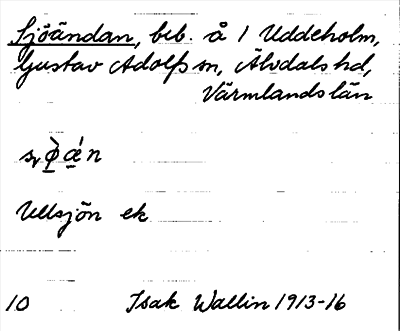 Sjöändan, beb. å 1 Uddeholm,
Gustav Adolfs sn, Älvdals hd,
Värmlands län
Ullsjön ek
10 Isak Wallin 1913-16